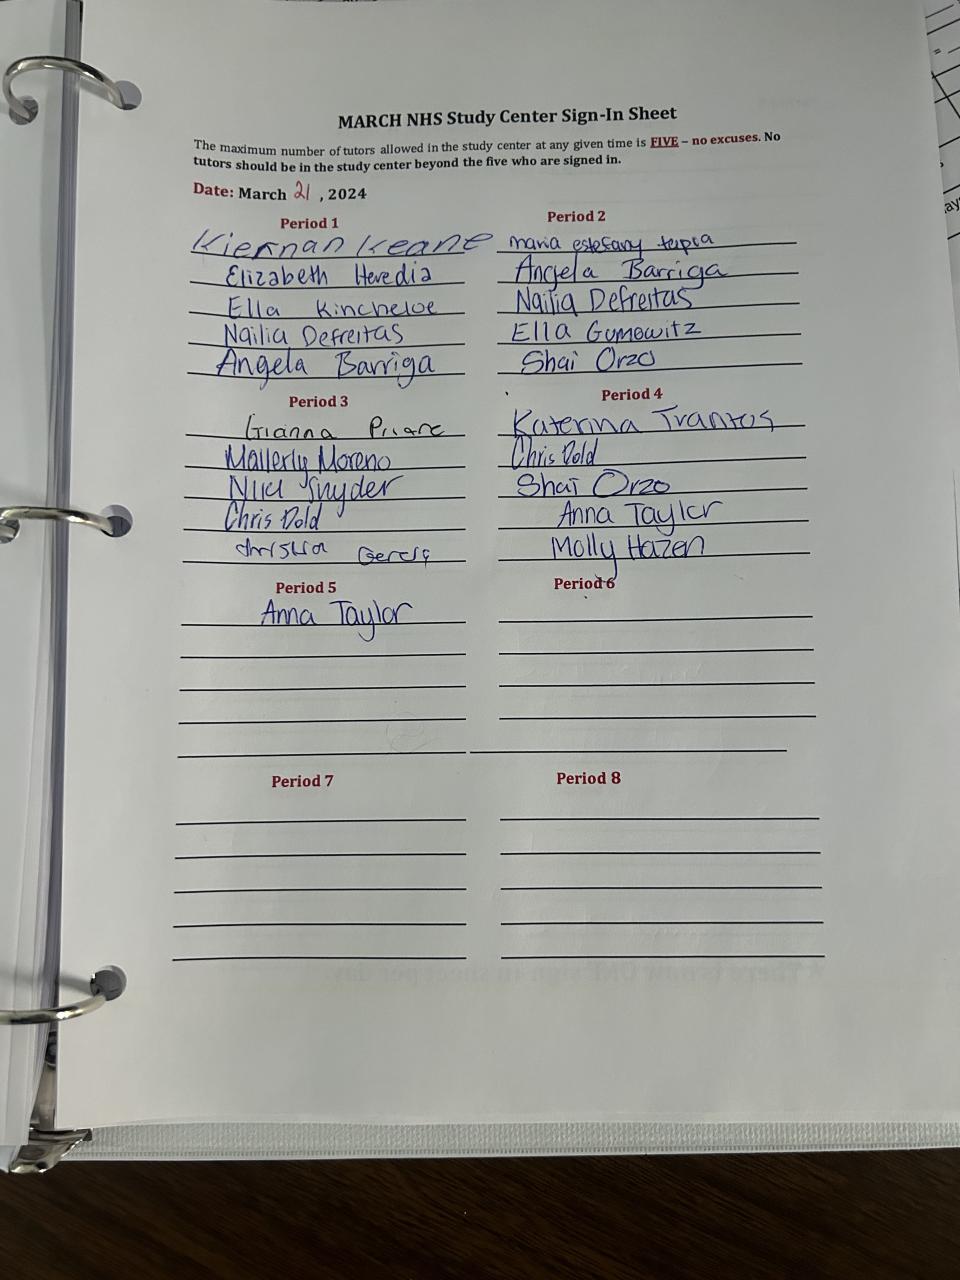 MARCH NHS Study Center Sign-In Sheet
The maximum number of tutors allowed in the study center at any given time is FIVE – no excuses. No
tutors should be in the study center beyond the five who are signed in.
Date: March 21, 2024
Period 1
Kiernan Keane
Elizabeth Heredia
Ella Kincheloe
Nailia Defreitas
Angela Barriga
Period 2
maria estefany tapia
Angela Barriga
Nailia Defreitas
Ella Gumowitz
Shai Orzo
Period 3
Gianna
Mallerly Moreno
Niki Snyder
Chris Dold
Period 4
Katerina Trantos
Chris Dold
Shai Orzo
Anna Taylor
Molly Hazen
Period 5
Anna Taylor
Period 6
Period 7
Period 8